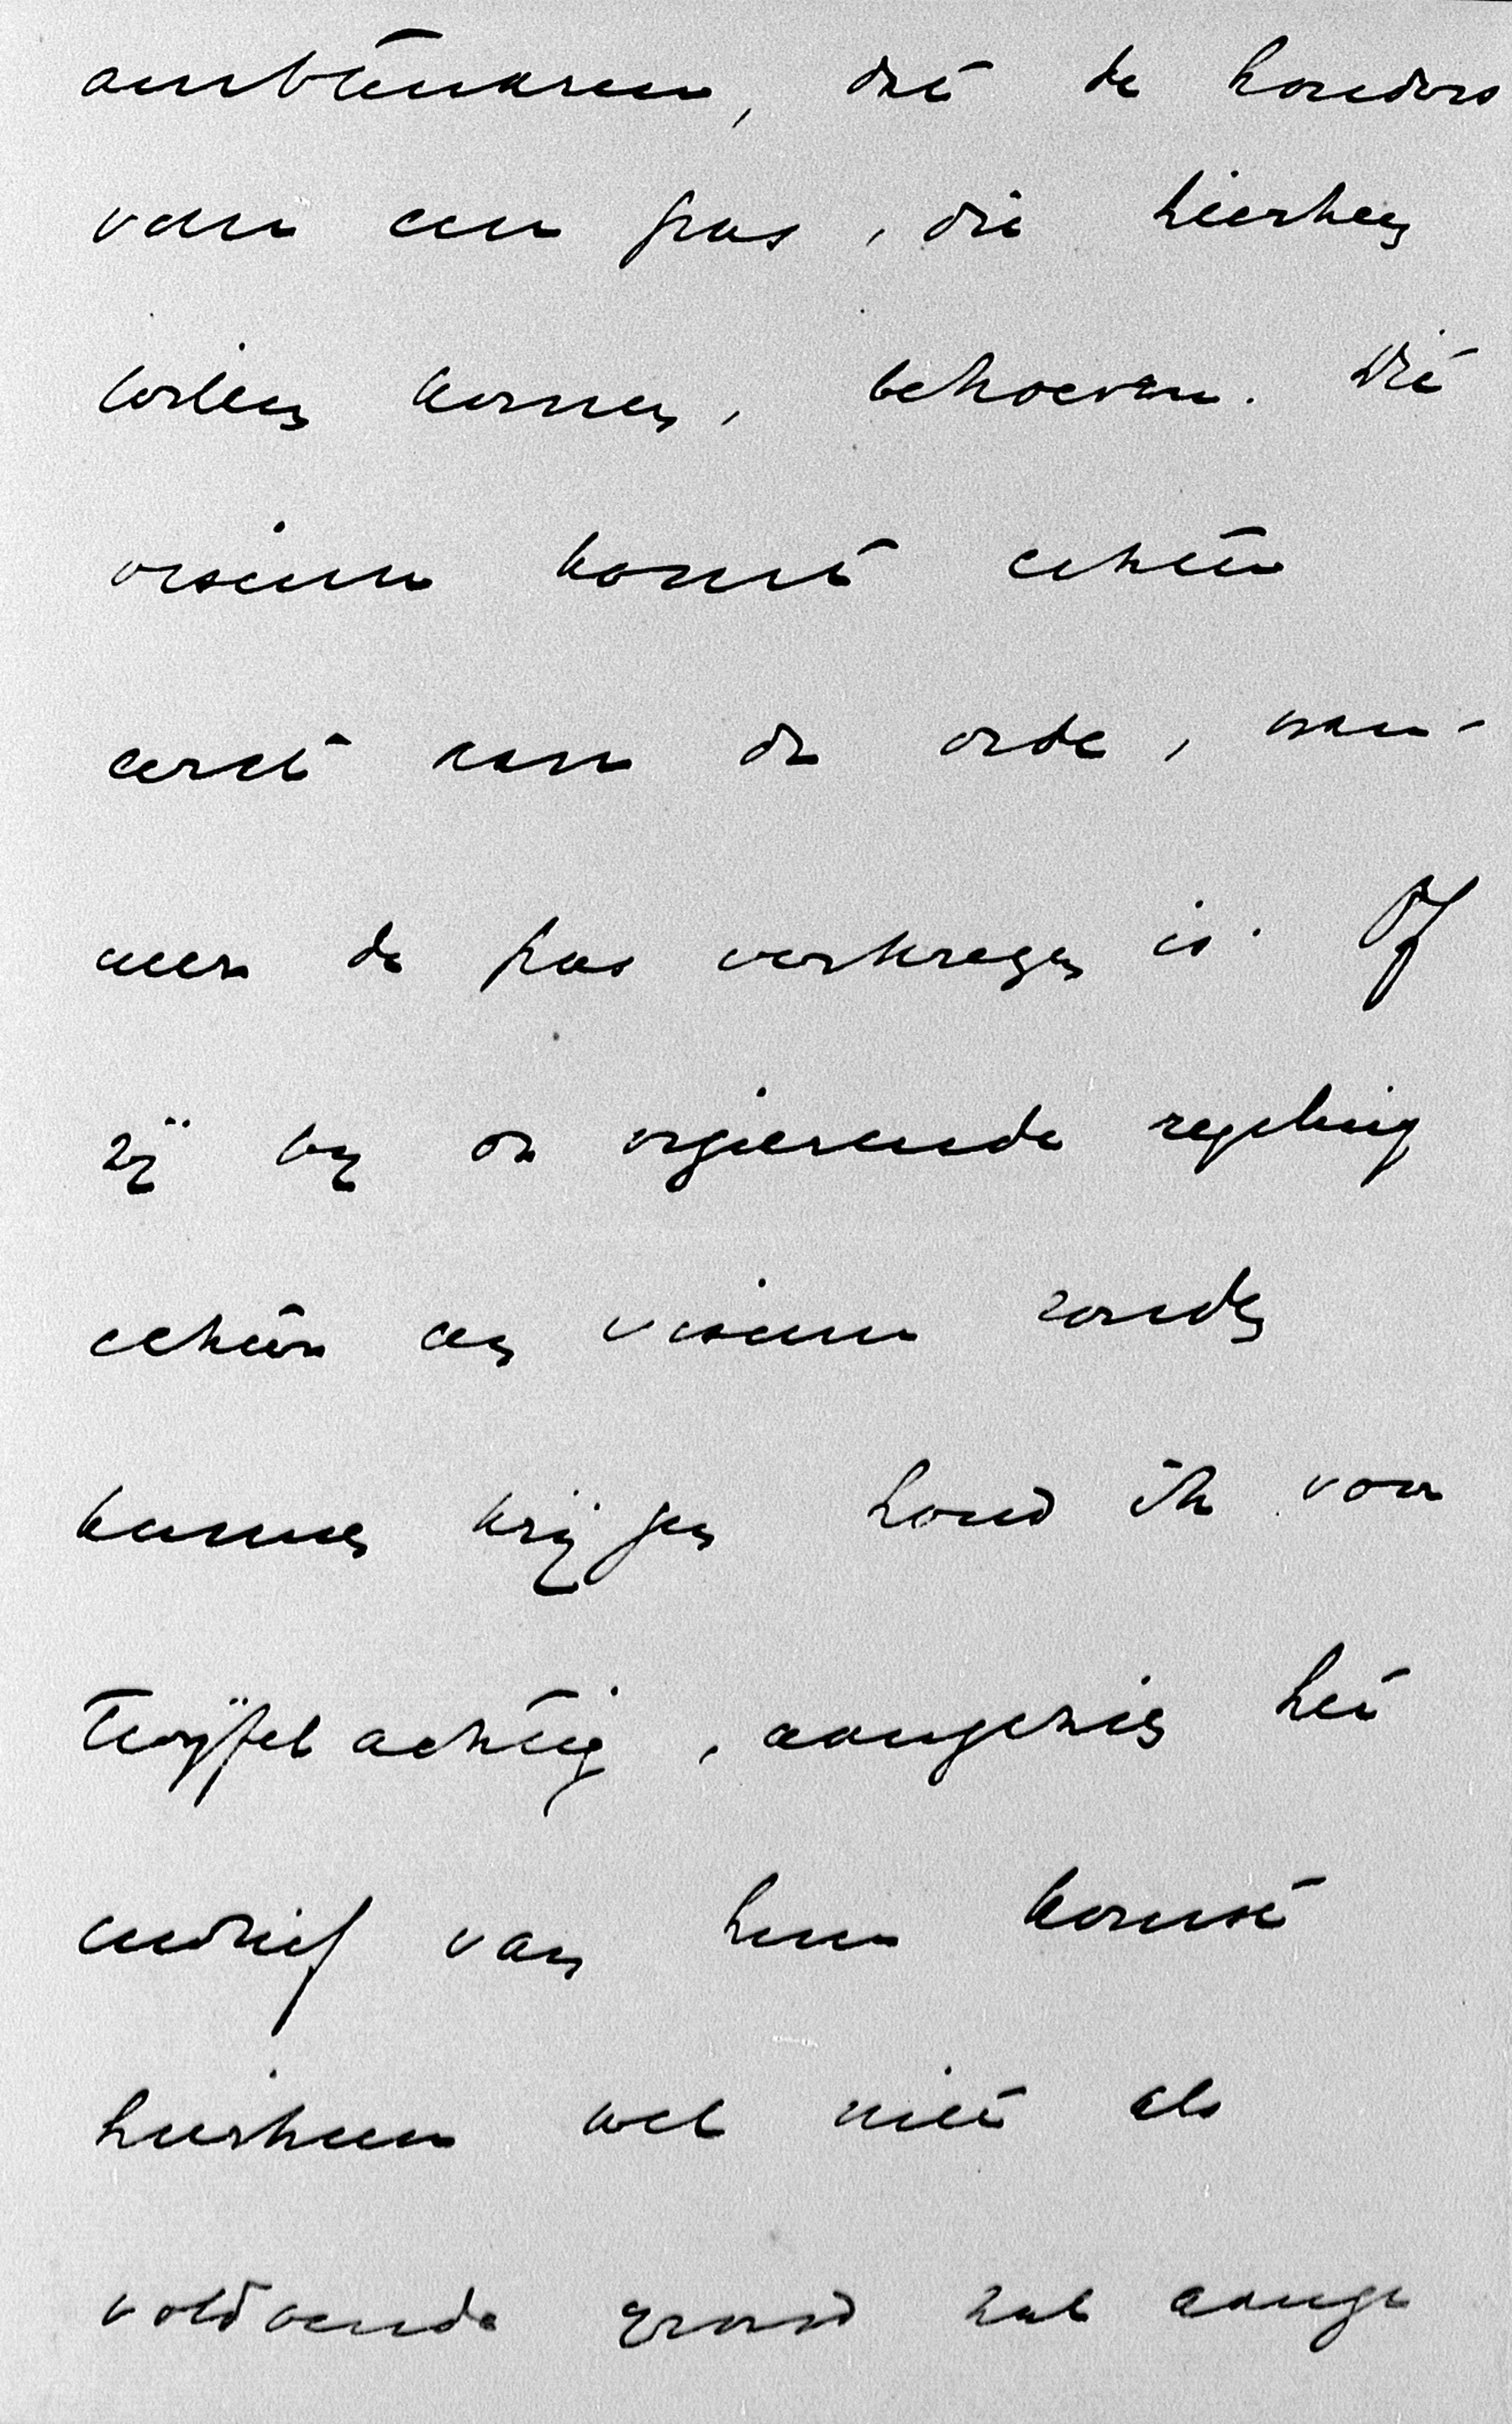 ambtenaren, dat de houders
van een pas, die hierheen
willen komen, behoeven. Dit
visum komt echter
eerst aan de orde, wan-
neer de pas verkregen is. Of
zij bij de vigeerende regeling
echter een visum zouden
kunnen krijgen houd ik voor
twijfelachtig, aangezien het
motief van hun komst
hierheen wel niet als
voldoende grond zal aange